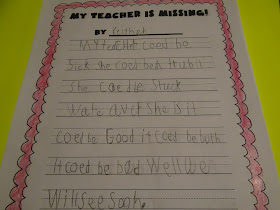 MY TEACHER IS MISSING!
BY
My teacher coed be
Sick she coed be
She coed be Stuck
She is it
coed be Good it coed be both
it coed be bad Well we
Will see soon.